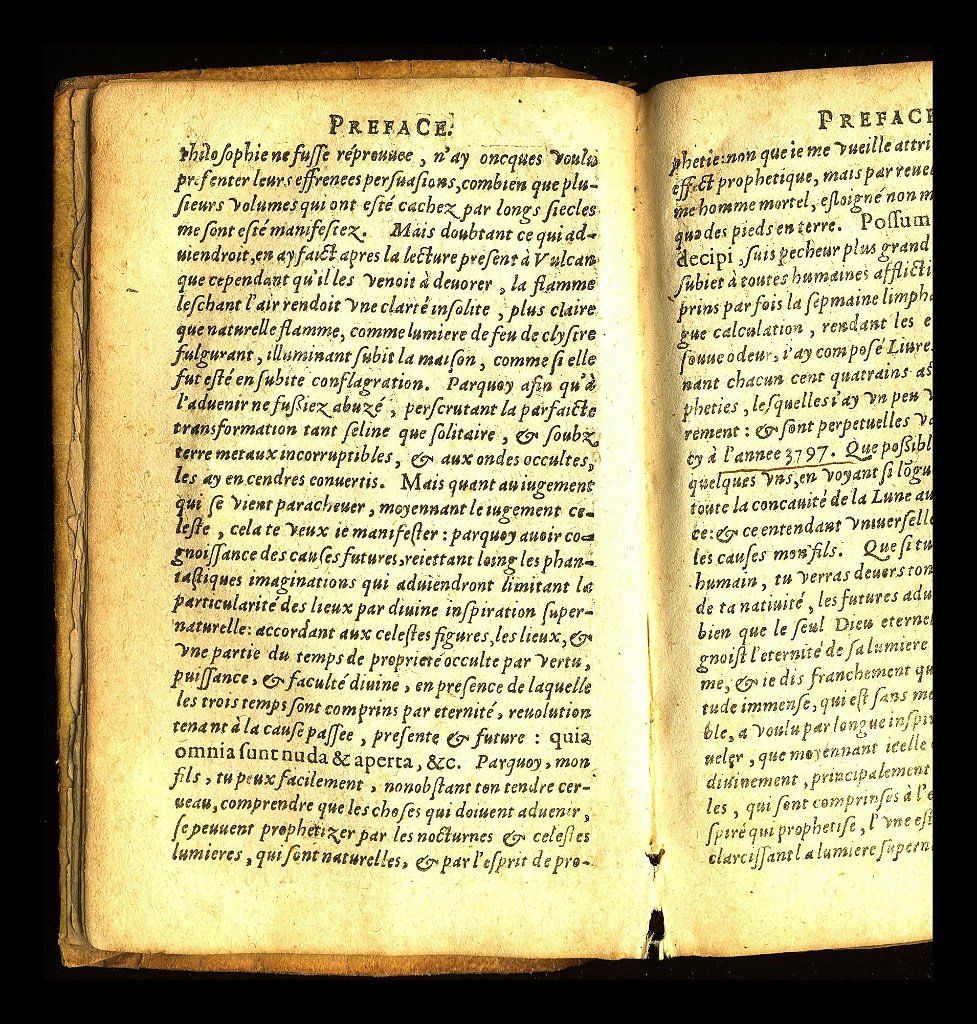 PREFACE.
philosophie ne fusse réprouuee, n'ay oncques voulu
presenter leurs effrenees persuasions, combien que plu-
sieurs volumes qui ont esté cachez par longs siecles
me sont esté manifestez. Mais doubtant ce qui ad-
uiendroit, en ay faict apres la lecture present à Vulcan
que cependant qu'il les venoit à deuorer, la flamme
leschant l'air rendoit vne clarté insolite, plus claire
que naturelle flamme, comme lumiere de feu de clystre
fulgurant, illuminant subit la maison, comme si elle
fut esté en subite conflagration. Parquoy afin qu'à
l'aduenir ne fußiez abuzé, perscrutant la parfaicte
transformation tant seline que solitaire, & soubz
terre metaux incorruptibles, & aux ondes occultes,
les ay en cendres conuertis. Mais quant au iugement
qui se vient parachever, moyennant le iugement ce-
leste, cela te veux ie manifester : parquoy auoir co-
gnoissance des causes futures, reiettant loing les phan-
tastiques imaginations qui aduiendront limitant la
particularité des lieux par diuine inspiration super-
naturelle: accordant aux celestes figures, les lieux, &
vne partie du temps de proprieté occulte par vertu,
puissance, & faculté diuine, en presence de laquelle
les trois temps sont comprins par eternité, reuolution
tenant à la cause passee, presente & future : quia
omnia sunt nuda & aperta, &c. Parquoy, mon
fils, tu peux facilement, nonobstant ton tendre cer-
ueau, comprendre que les choses qui doiuent aduenir,
se peuuent prophetizer par les nocturnes & celestes
lumieres, qui sont naturelles, & par l'esprit de pro-
PREFACE
phetie: non que ie me vueille attri
effect prophetique, mais par reuel
me homme mortel, esloigné non m
que des pieds en terre. Possum
decipi, suis pecheur plus grand
subiet à toutes humaines afflicti
prins par fois la sepmaine limpha
gue calculation, rendant les e
souue odeur, i'ay composé Liure
nant chacun cent quatrains as
pheties, lesquelles i'ay vn peu v
rement : & sont perpetuelles va
cy à l'annee 3797. Que poßibl
quelques vns, en voyant si lōgu
toute la concauité de la Lune au
ce: & ce entendant vniuerselle
les causes mon fils. Que si tu
humain, tu verras deuers ton
de ta natiuité, les futures adu
bien que le seul Dieu eternel
gnoist l'eternité de sa lumiere
me, & ie dis franchement qu
tude immense, qui est sans me
ble, a voulu par longue inspir
ueler, que moyennant icelle
diuinement, principalement
les, qui sont comprinses à l'e
spire qui prophetise, l'vne est
clarcissant la lumiere supern